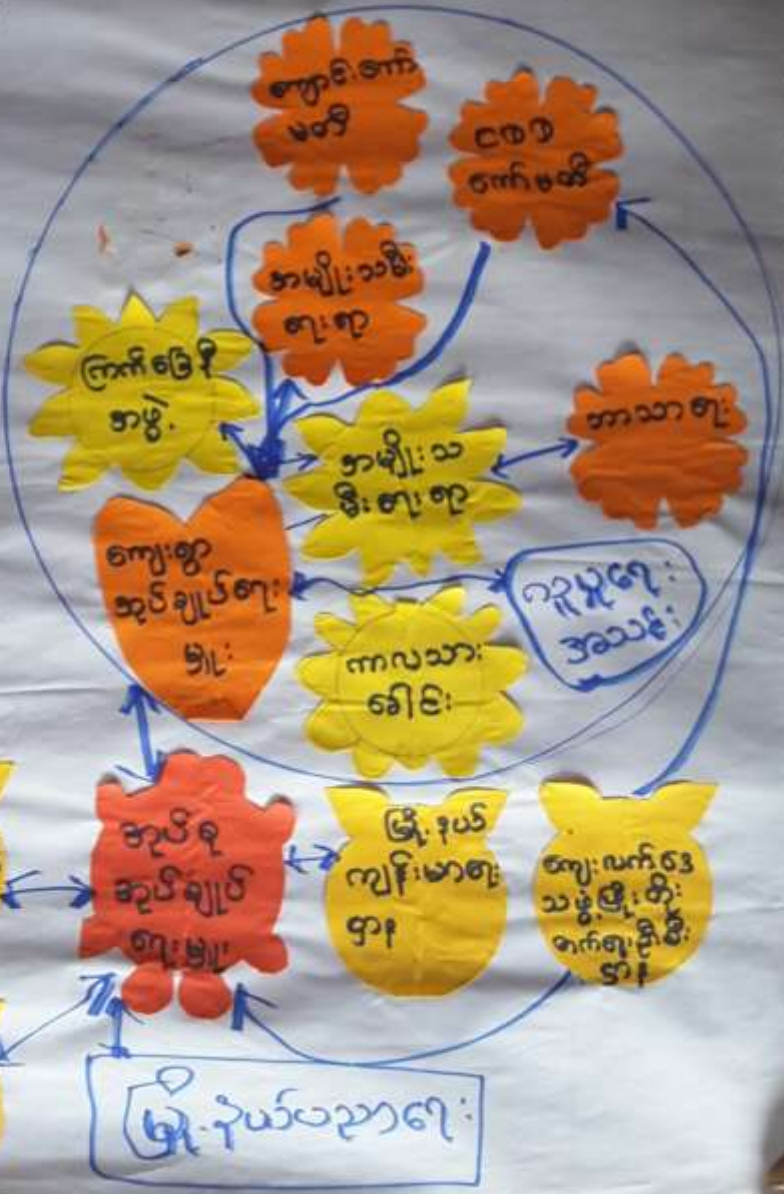 ကျောင်းကော်
မတီ
ငစခ
ကော်မတီ
အမျိုးသမီး
ရေးရာ
ကြက်ခြေနီ
အဖွဲ့
အမျိုးသ
မီးရေးရာ
ဘာသာရေး
ကျေးရွာ
အုပ်ချုပ်ရေး
မှူး
ကူညီမှုရေး
အသင်း
ကာလသား
ခေါင်း
အုပ်စု
အုပ်ချုပ်
ရေးမှူး
မြို့နယ်
ကျန်းမာရေး
ဌာန
ကျေးလက်ဒေ
သဖွံ့ဖြိုးတိုး
တက်ရေးဦးစီး
ဌာန
မြို့နယ်ပညာရေး